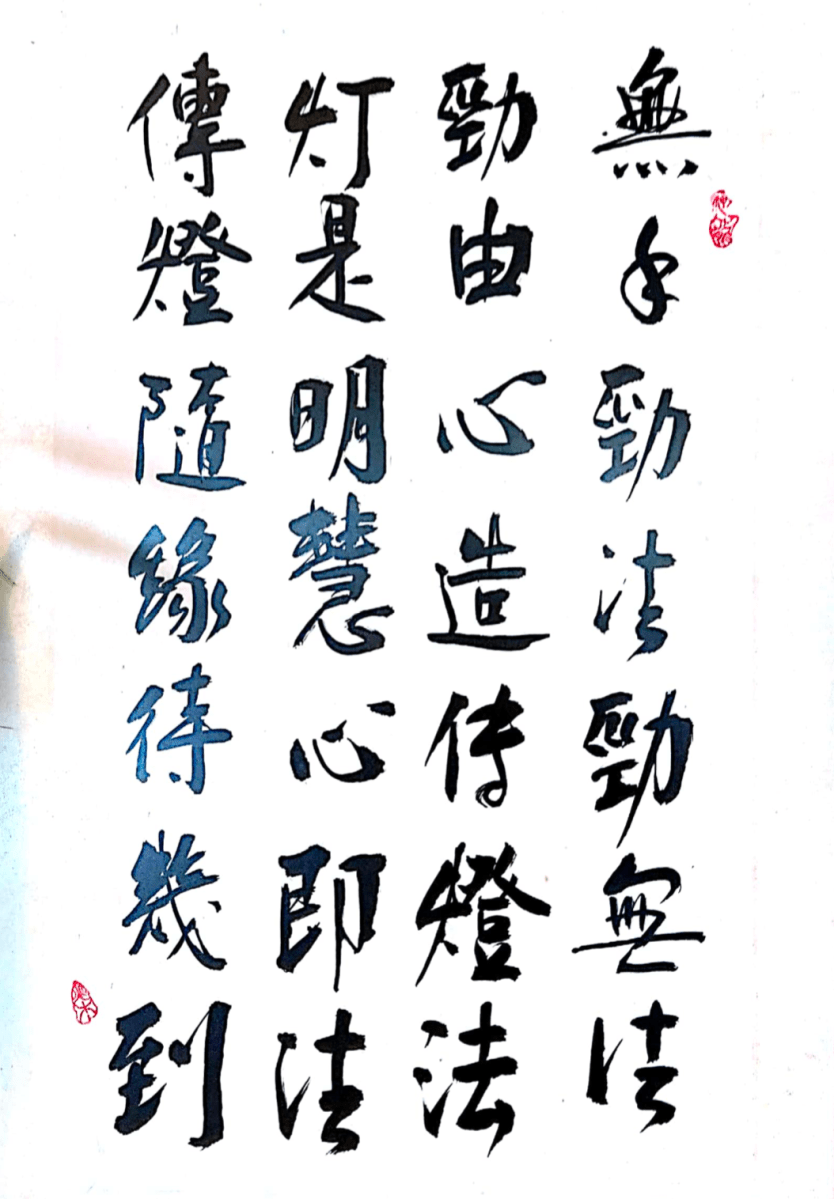 無手勁法勁無法
勁由心造传燈法
灯是明慧心即法
傳燈隨緣待幾到